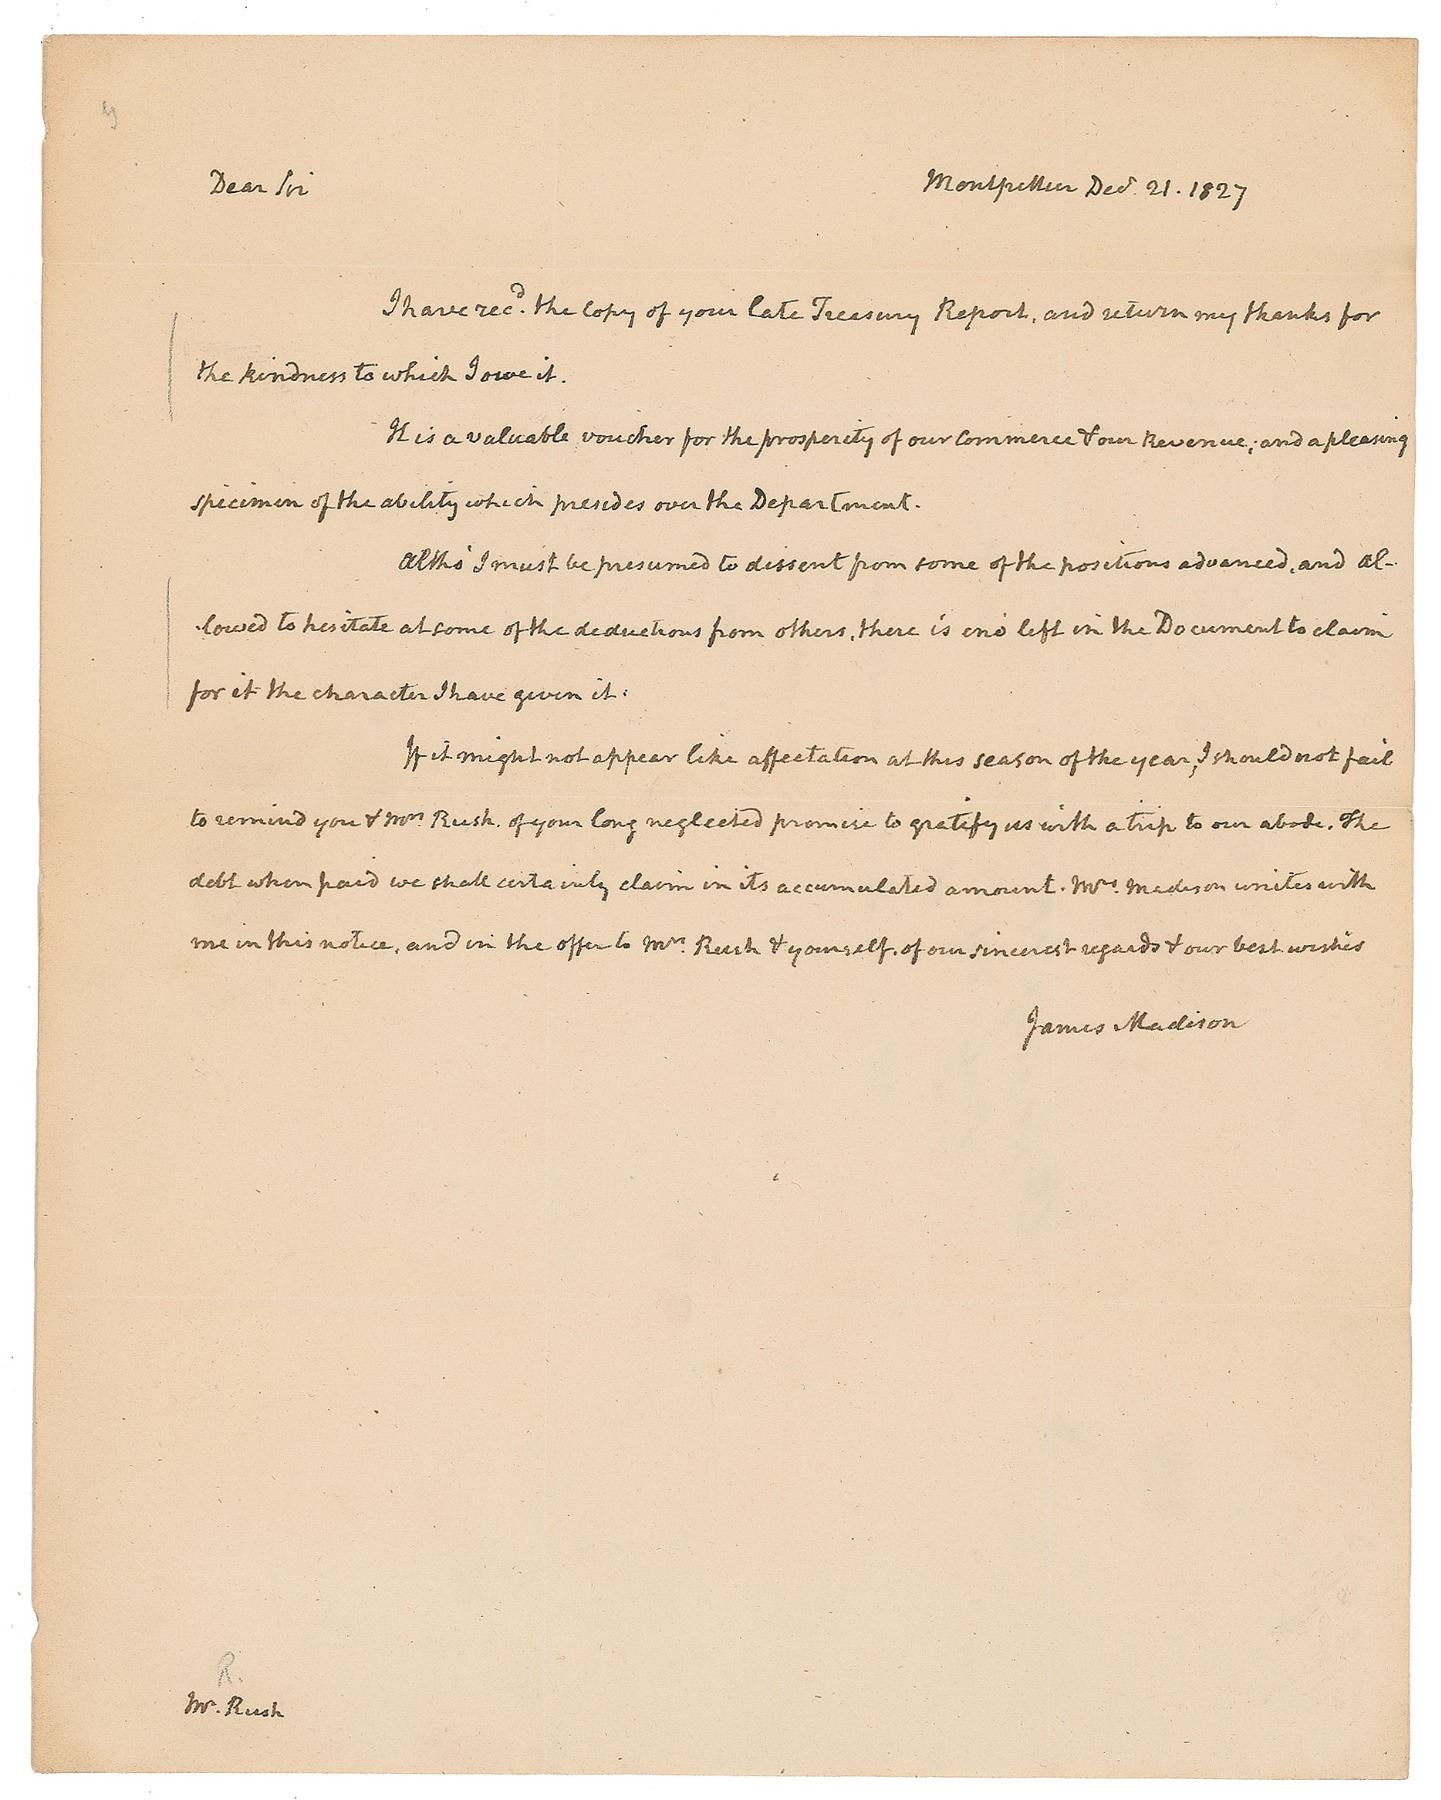 Dear Sir
Montpellier Decr. 21. 1827
I have recd. the copy of your late Treasury Report, and return my thanks for
the kindness to which I owe it.
It is a valuable voucher for the prosperity of our Commerce & our Revenue; and a pleasing
specimen of the ability which presides over the Department.
Altho' I must be presumed to dissent from some of the positions advanced, and al-
-lowed to hesitate at some of the deductions from others, there is eno' left in the Document to claim
for it the character I have given it.
If it might not appear like affectation at this season of the year, I should not fail
to remind you & Mrs. Rush of your long neglected promise to gratify us with a trip to our abode. The
debt when paid we shall certainly claim in its accumulated amount. Mrs. Madison unites with
me in this notice, and in the offer to Mrs. Rush & yourself, of our sincerest regards & our best wishes
James Madison
R.
Mr. Rush